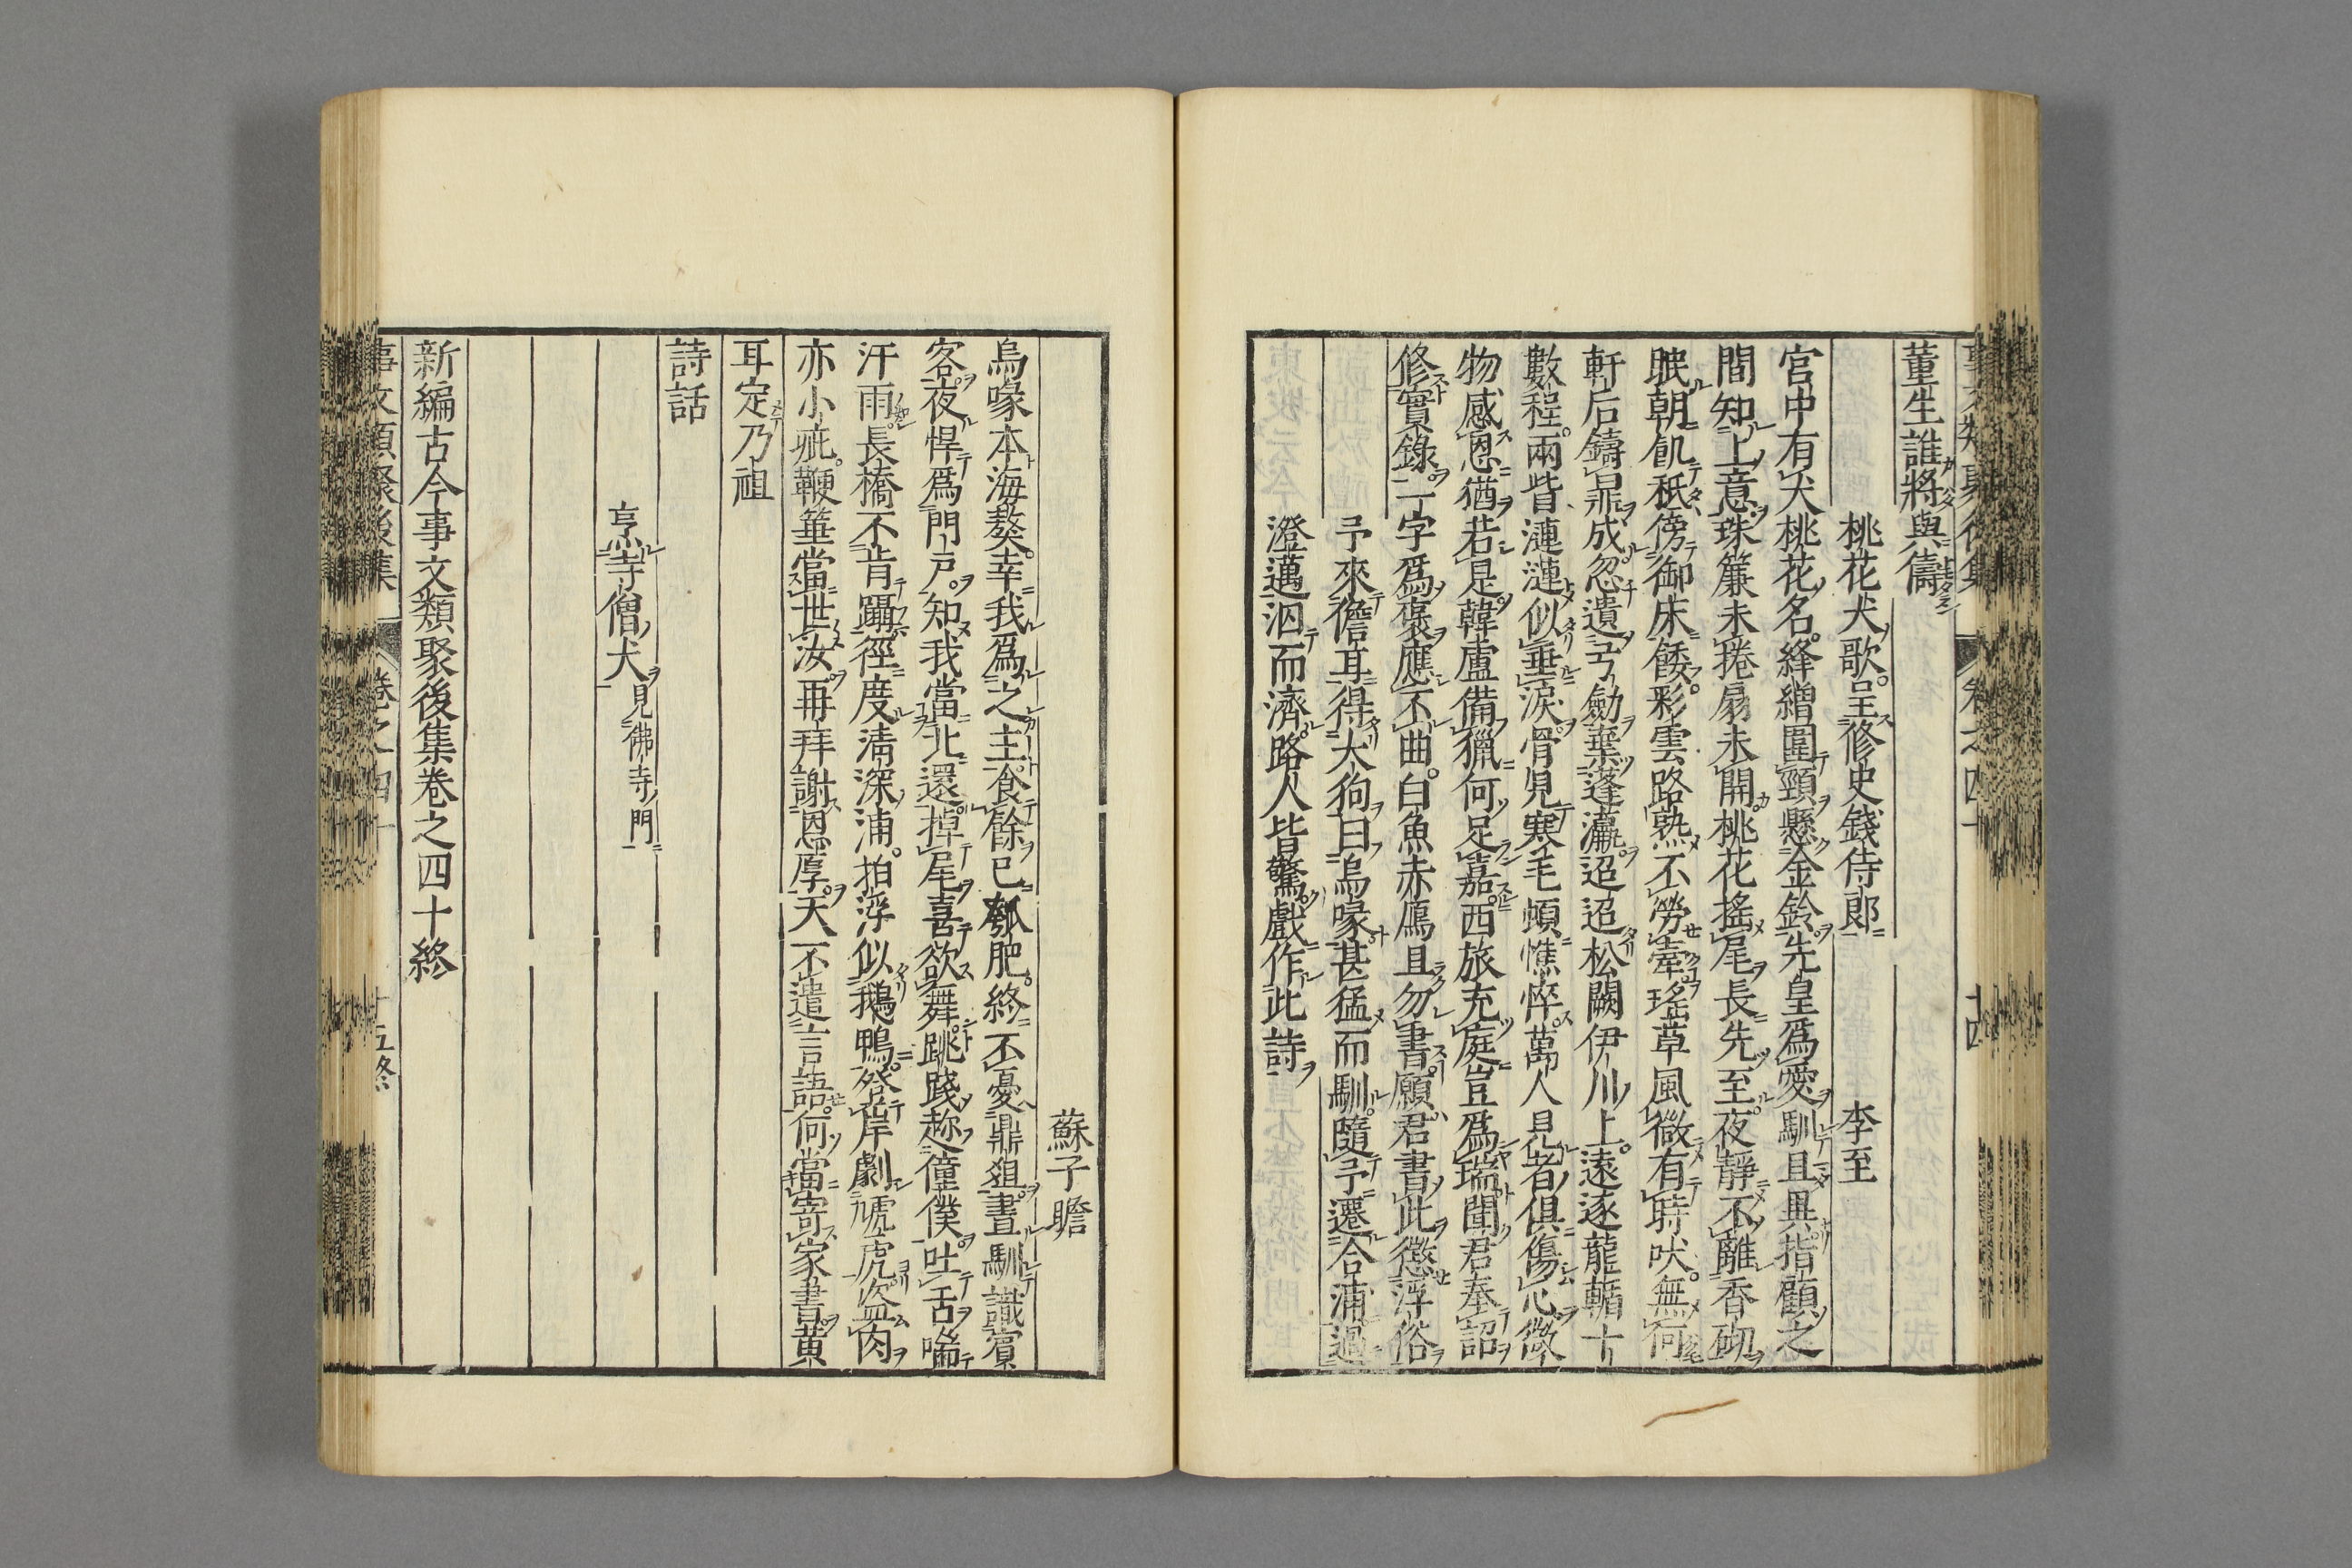 董生誰將與儔
桃花犬歌呈修史錢侍郎 李至
宮中有犬桃花名絳繒圍頸懸金鈴先皇爲愛馴且異指顧之
間知上意珠簾未捲扇未開桃花搖尾長先至夜靜不離香砌
眠朝飢秪傍御床餧彩雲路熟不勞牽瑤草風微有時吠無何
軒后鑄鼎成忽遺弓劍棄蓬瀛迢迢松闕伊川上遠逐龍輴十
數程兩眥漣漣似垂淚骨見寒毛頓憔悴萬人見者俱傷心微
物感恩猶若是韓盧備獵何足嘉西旅充庭豈爲瑞聞君奉詔
修實錄一字爲褒應不曲白魚赤鴈且勿書願君書此懲浮俗
予來儋耳得犬狗曰烏喙甚猛而馴隨予遷合浦過
澄邁泅而濟路人皆驚戲作此詩
蘇子瞻
烏喙本海獒幸我爲之主食餘已瓠肥終不憂鼎俎晝馴識賓
客夜悍爲門戶知我當北還掉尾喜欲舞跳踐趂僮僕吐舌喘
汗雨長橋不肯躡徑度清深浦拍浮似鵝鴨登岸劇虓虎盜肉
亦小疵鞭箠當世汝再拜謝恩厚天不遣言語何當寄家書黄
耳定乃祖
詩話
烹寺僧犬見佛寺門
新編古今事文類聚後集卷之四十終
事文類聚後集 卷之四十 十五終